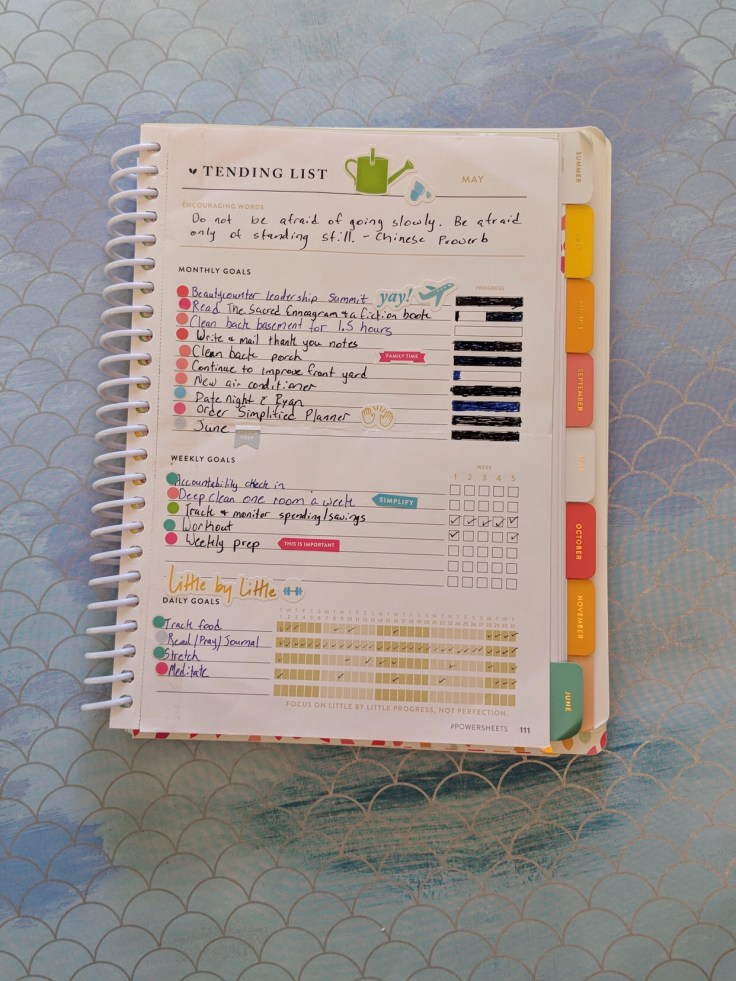 TENDING LIST
MAY
ENCOURAGING WORDS
Do not be afraid of going slowly. Be afraid
only of standing still. - Chinese Proverb
MONTHLY GOALS
PROGRESS
Beautycounter leadership Summit yay!
Read The Sacred Enneagram & a fiction book
Clean back basement for 1.5 hours
Write & mail thank you notes
Clean back porch FAMILY TIME
Continue to improve front yard
New air conditioner
Date Night Ryan
Order Simplified Planner
June
WEEKLY GOALS
WEEK
1 2 3 4 5
Accountability check in
Deep clean one room a week SIMPLIFY
Track & monitor spending/savings
Workout
Weekly prep THIS IS IMPORTANT
Little by Little
DAILY GOALS
Track food
Read/Pray/Journal
Stretch
Meditate
FOCUS ON LITTLE BY LITTLE PROGRESS, NOT PERFECTION.
#POWERSHEETS 111
SUMMER
SEPTEMBER
OCTOBER
NOVEMBER
JUNE